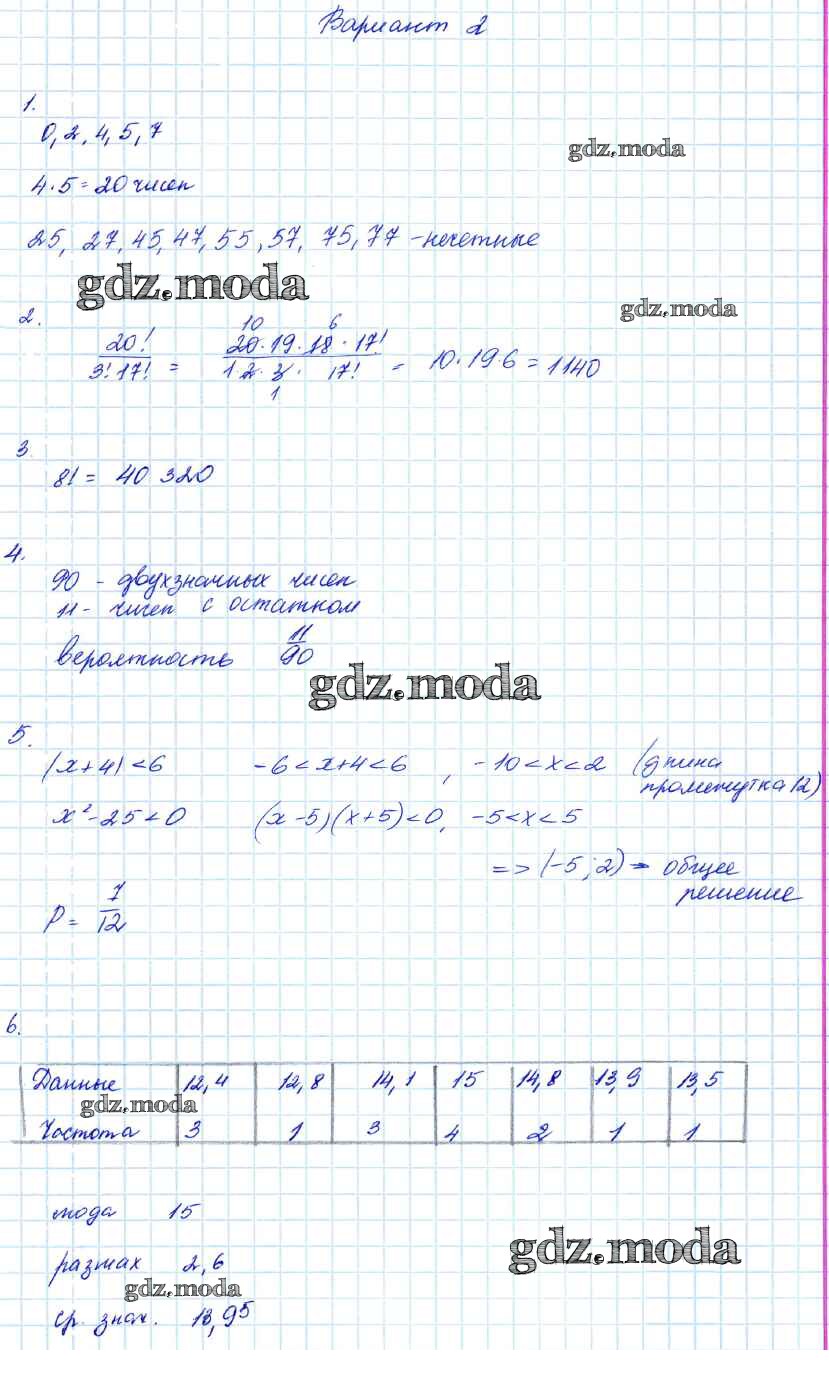 Вариант 2
1.
0, 2, 4, 5, 7
gdz.moda
4·5=20 чисел
25, 27, 45, 47, 55, 57, 75, 77 - нечетные
gdz.moda
gdz.moda
2.
20!/3!17! = 20·19·18·17!/1·2·3·17! = 10·19·6 = 1140
10 6
1
3.
8! = 40 320
4.
90 - двухзначных чисел
11 - чисел с остатком
вероятность 11/90
gdz.moda
5.
|x+4|<6 -6<x+4<6, -10<x<2 (длина промежутка 12)
x²-25<0 (x-5)(x+5)<0, -5<x<5
=> (-5; 2) - общее
решение
P = 7/12
6.
Данные 12,4 12,8 14,1 15 14,8 13,9 13,5
gdz.moda
Частота 3 1 3 4 2 1 1
мода 15
gdz.moda
размах 2,6
gdz.moda
ср. знач. 13,95